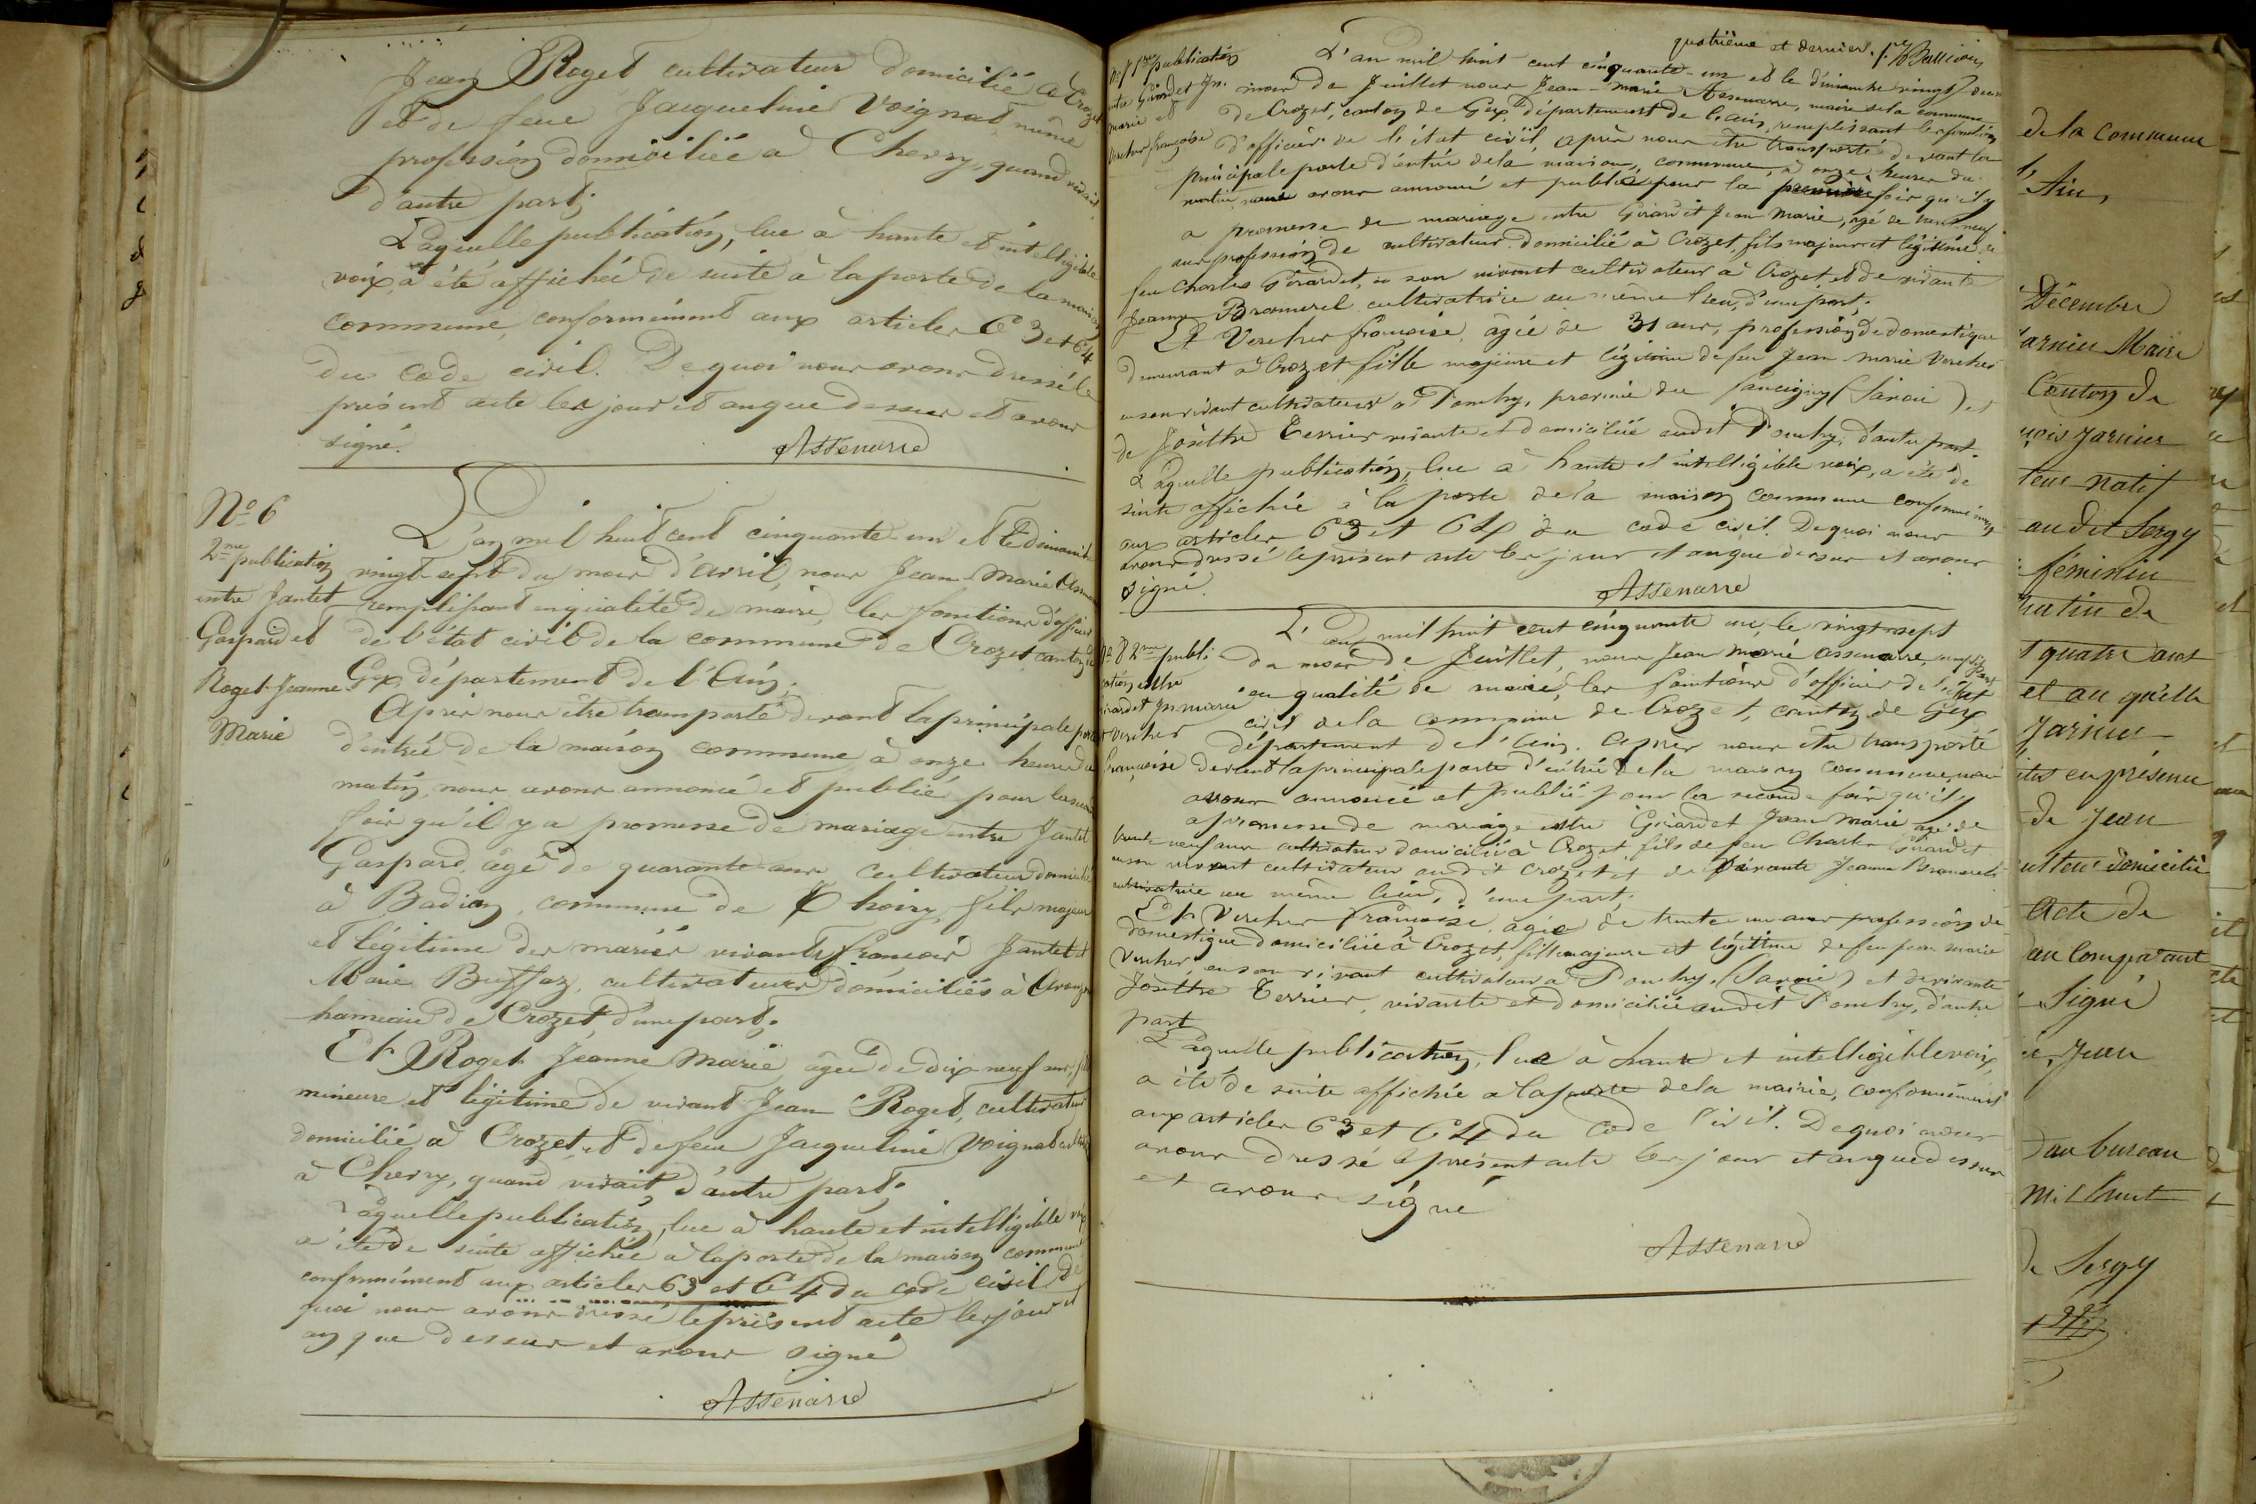 Jean Roget cultivateur domicilié à Crozet
et de feue Jacqueline Voignat, même
profession domiciliée à Chevry, quand vivait,
d'autre part;
Laquelle publication, lue à haute et intelligible
voix, a été affichée de suite à la porte de la maison
commune, conformément aux articles 63 et 64
du code civil. De quoi nous avons dressé le
présent acte les jour et an que dessus et avons
signé.
Assenarre
Nº 6
2me publication
entre Jantet
Gaspard et
Roget Jeanne
Marie
L'an mil huit cent cinquante-un et le dimanche
vingt-sept du mois d'avril, nous Jean-Marie
remplissant en qualité de maire, les fonctions d'officier
de l'état civil de la commune de Crozet canton de
Gex, département de l'Ain.
Après nous être transporté devant la principale porte
d'entrée de la maison commune à onze heures du
matin, nous avons annoncé et publié pour la
fois qu'il y a promesse de mariage entre Jantet
Gaspard, âgé de quarante ans cultivateur domicilié
à Badian, commune de Thoiry, fils majeur
et légitime des mariés vivants François Jantet et
Marie Buffaz, cultivateurs domiciliés à
hameau de Crozet, d'une part.
Et Roget Jeanne Marie âgée de dix neuf ans, fille
mineure et légitime de vivant Jean Roget, cultivateur
domicilié à Crozet, et de feue Jacqueline Voignat
à Chevry, quand vivait, d'autre part.
Laquelle publication, lue à haute et intelligible voix
a été de suite affichée à la porte de la maison commune
conformément aux articles 63 et 64 du code civil De
quoi nous avons dressé le présent acte les jour et
an que dessus et avons signé
Assenarre
quatrième et dernier.
Nº 7 1ère publication
entre Girardet Jn.
marie et
Vercher françoise
L'an mil huit cent cinquante-un et le dimanche vingt
mois de Juillet nous Jean-marie Assenarre, maire de la commune
de Crozet, canton de Gex, département de l'ain, remplissant les fonctions
d'officier de l'état civil, après nous être transporté devant la
principale porte d'entrée de la maison commune, à onze heures du
matin nous avons annoncé et publié pour la première fois qu'il y
a promesse de mariage entre Girardet Jean Marie, âgé de
ans profession de cultivateur domicilié à Crozet, fils majeur et légitime de
feu Charles Girardet, en son vivant cultivateur à Crozet et de vivante
Jeanne cultivatrice au même lieu, d'une part;
Et Vercher françoise, âgée de 31 ans, profession de domestique
demeurant à Crozet fille majeure et légitime de feu Jean marie Vercher
en son vivant cultivateur à province du faucigny (Savoie) et
de Josèthe Terrier vivante et domiciliée audit d'autre part.
Laquelle publication, lue à haute et intelligible voix, a été de
suite affichée à la porte de la maison commune conformément
aux articles 63 et 64 du code civil. De quoi nous
avons dressé le présent acte les jour et an que dessus et avons
signé.
Assenarre
Nº 8 2me publi-
cation entre
Girardet Jn marie
et Vercher
françoise
L'an mil huit cent cinquante un, le vingt-sept
du mois de Juillet, nous Jean Marie assenarre, remplissant
en qualité de maire, les fonctions d'officier de l'état
civil de la commune de Crozet, canton de Gex
département de l'ain. Après nous être transporté
devant la principale porte d'entrée de la maison commune, nous
avons annoncé et publié pour la seconde fois qu'il y
a promesse de mariage entre Girardet Jean Marie âgé de
trente neuf ans cultivateur domicilié à Crozet fils de feu Charles Girardet
en son vivant cultivateur audit Crozet et de vivante Jeanne
cultivatrice au même lieu, d'une part;
Et Vercher françoise, âgée de trente-un ans profession de
domestique domiciliée à Crozet, fille majeure et légitime de feu jean marie
Vercher en son vivant cultivateur à (Savoie) et de vivante
Josèthe Terrier, vivante et domiciliée audit d'autre
part
Laquelle publication, lue à haute et intelligible voix,
a été de suite affichée à la porte de la mairie, conformément
aux articles 63 et 64 du Code Civil. De quoi nous
avons dressé le présent acte les jour et an que dessus
et avons signé
Assenarre
de la commune
Ain,
Décembre
Maire
Canton de
natif
audit Sergy
féminin
matin de
quatre ans
et au quelle
en présence
de Jean
domicilié
Acte de
au comparant
Signé
Jean
au bureau
mil huit
de Sergy